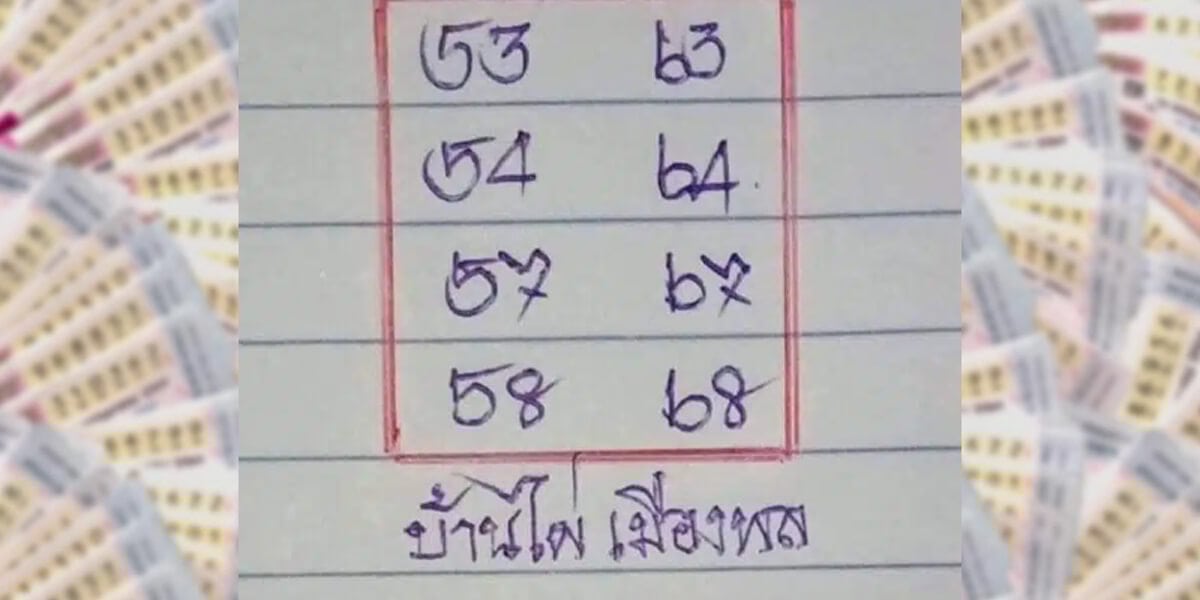 53 63
54 64
57 67
58 68
บ้านไผ่ เมืองพล